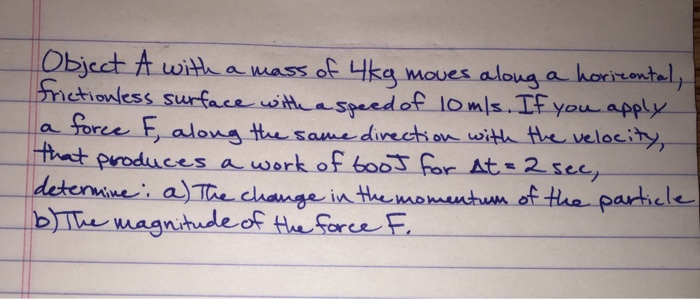 Object A with a mass of 4kg moves along a horizontal,
frictionless surface with a speed of 10 m/s. If you apply
a force F, along the same direction with the velocity,
that produces a work of 600J for Δt = 2 sec,
determine: a) The change in the momentum of the particle
b) The magnitude of the force F.